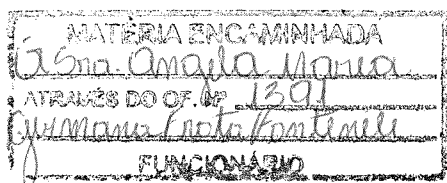 MATÉRIA ENCAMINHADA
À Sra. Angela Maria
ATRAVÉS DO OF. Nº 1391
Germana Frota Fontenele
FUNCIONÁRIO